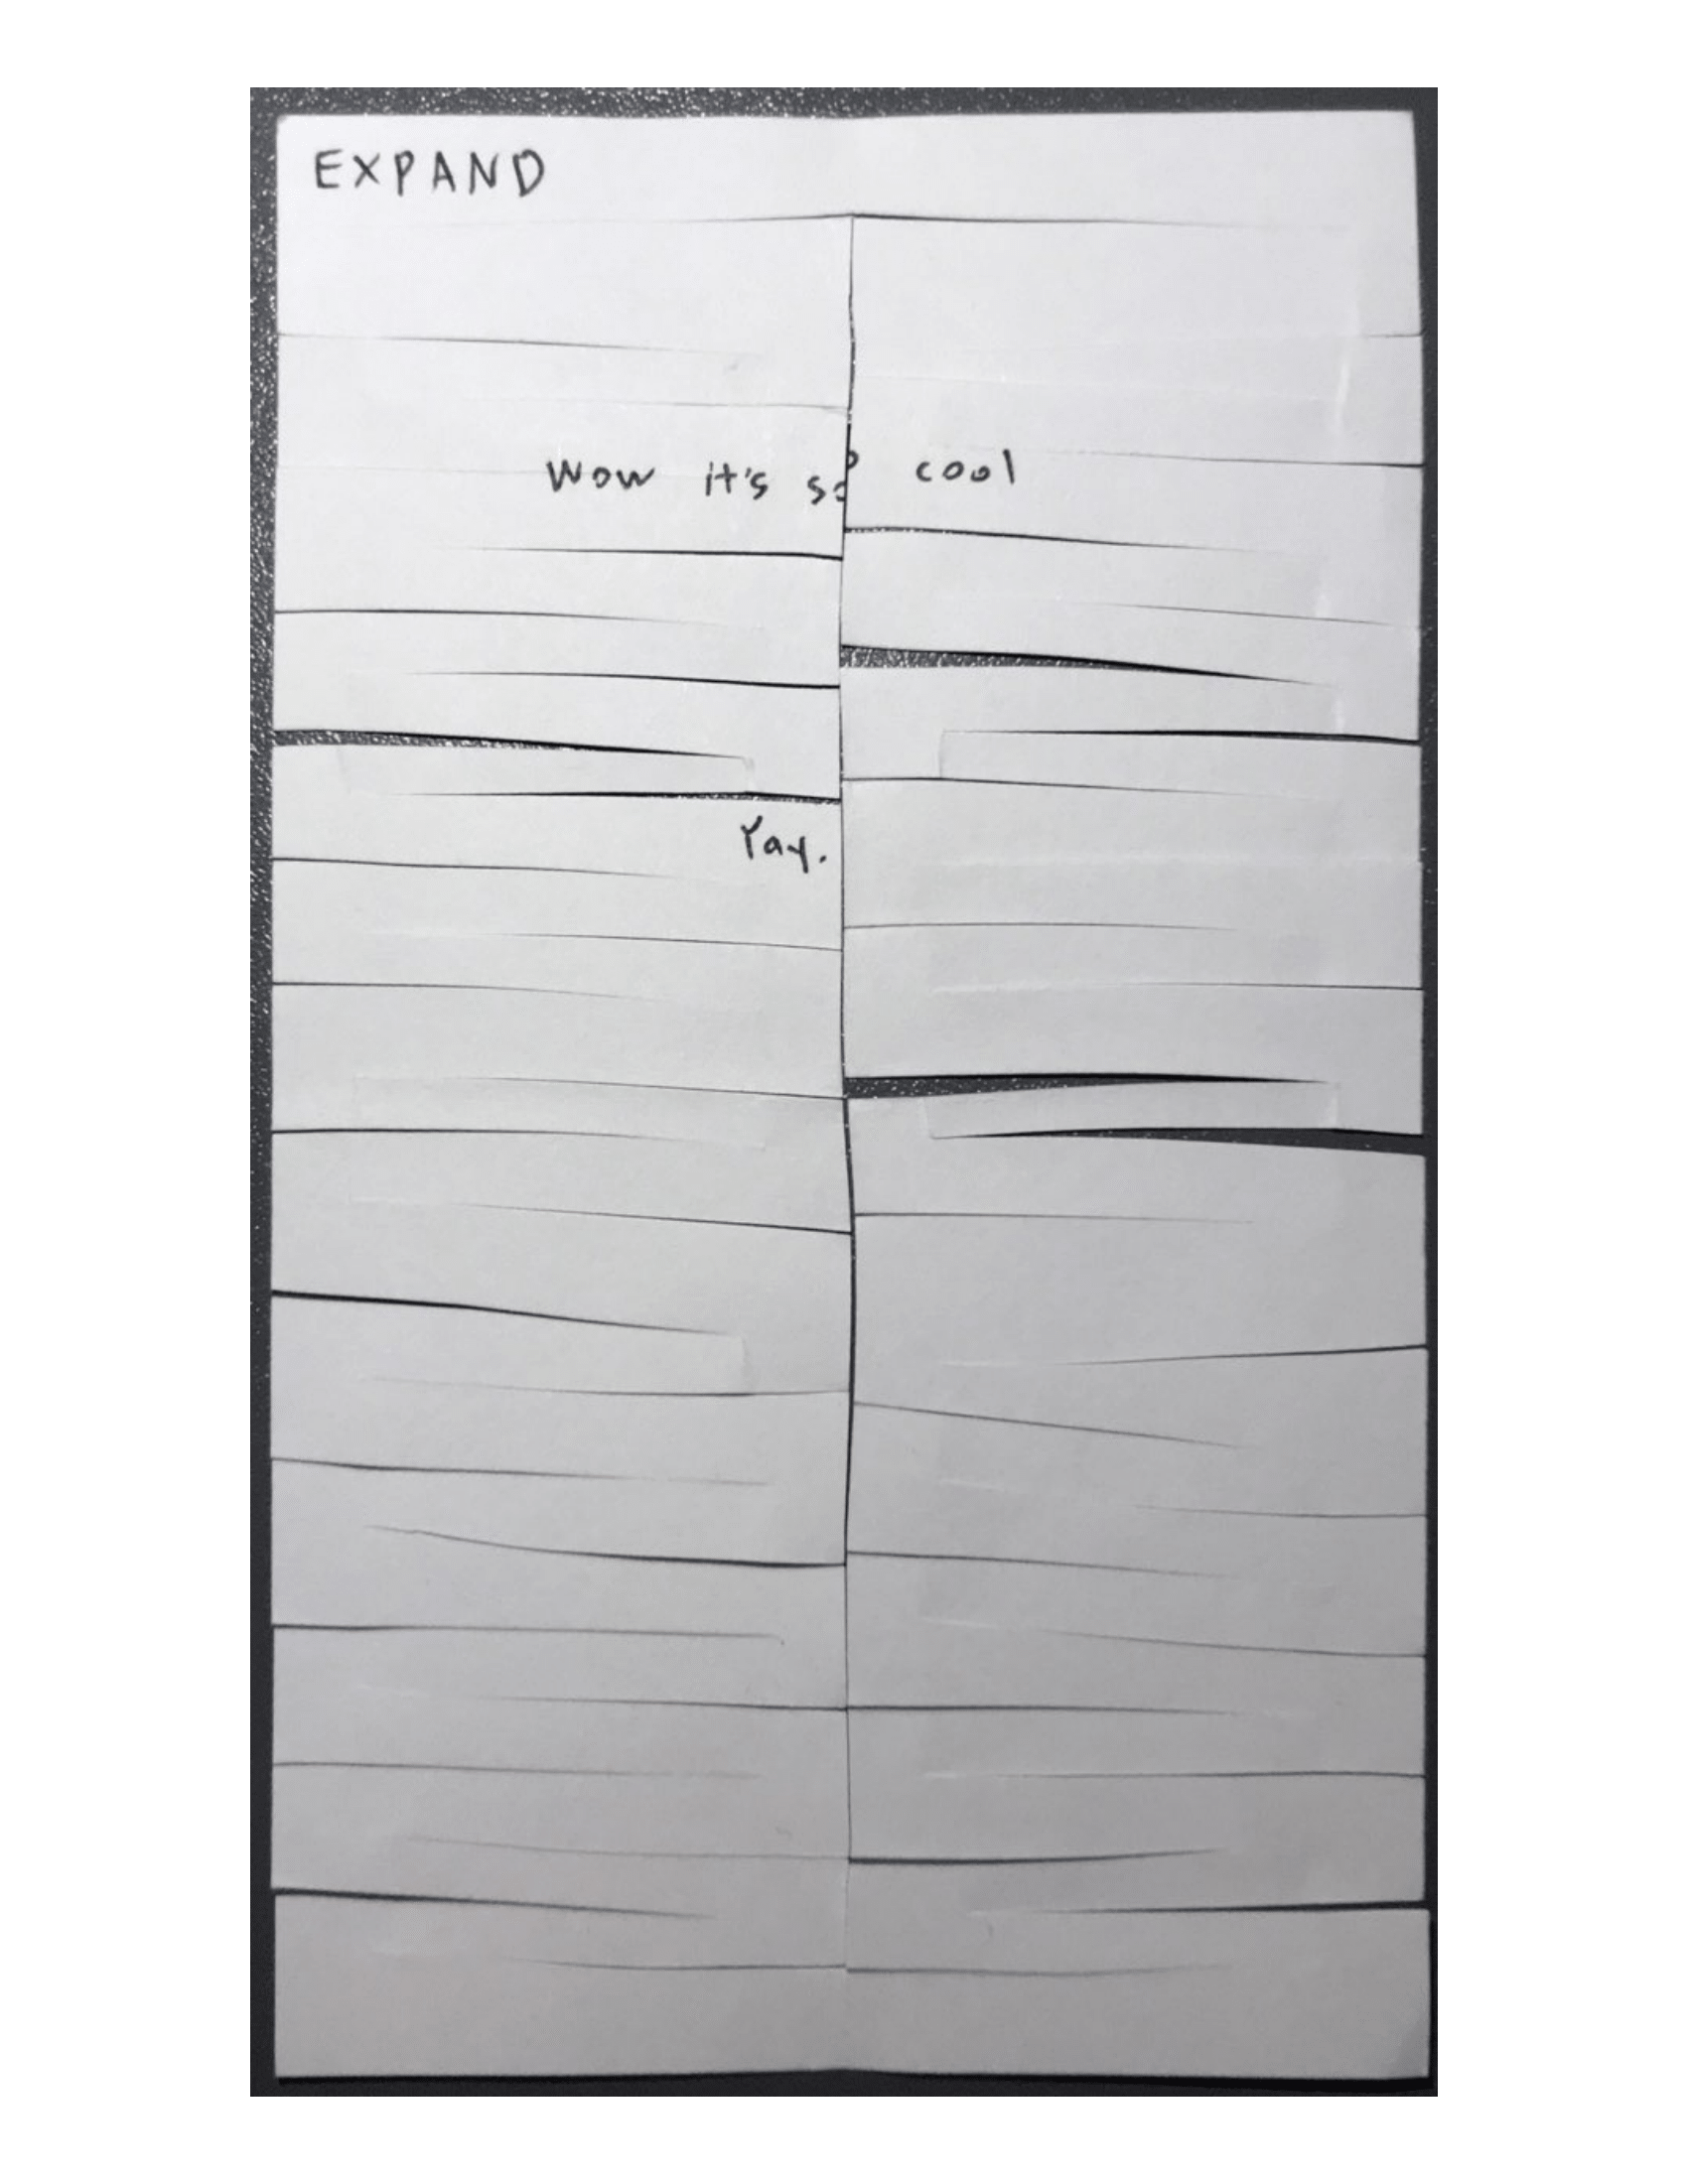 EXPAND
Wow it's so cool
Yay.